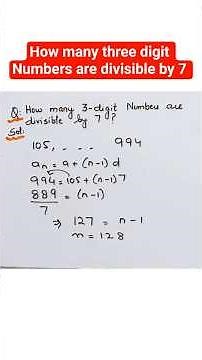 How many three digit
Numbers are divisible by 7
Q: How many 3-digit Numbers are
divisible by 7?
Sol:
105, - - - . 994
an = a + (n-1) d
994 = 105 + (n-1) 7
889/7 = (n-1)
⇒ 127 = n-1
n = 128